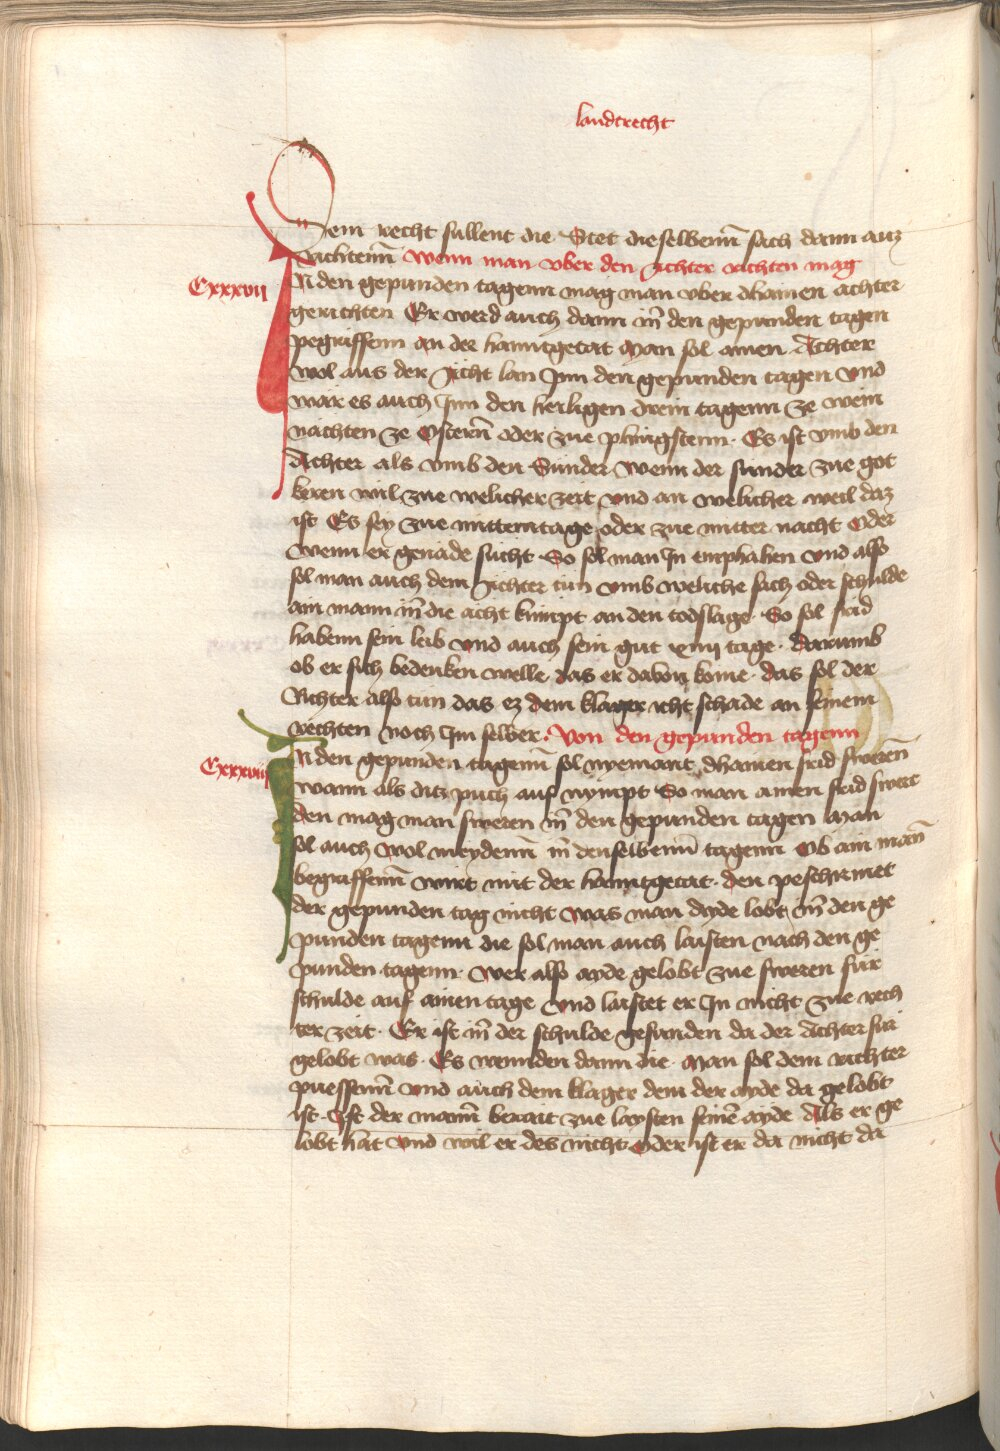 landtrecht
Dem recht sullent die Stet dieselbenn sach dann aus
richtenn Wenn man vber den Achter richten mag
Cxxxvii
IN den gepunden tagenn mag man vber dhainen achter
gerichten Er werd auch dann in den gepunden tagen
pegriffenn an der hanntgetat Man sol ainen Achter
wol aus der Acht lan Inn den gepunden tagen Vnd
war es auch Inn den heiligen drein tagenn ze wein
nachten ze Ostern oder zue phingstenn Es ist vmb den
Achter als vmb den Sunder Wenn der sunder zue got
keren wil zue welicher zeit vnd an welicher weil daz
ist Es sey zue mittemtage oder zue mitter nacht Oder
Wenn er genade sucht So sol man In emphahen vnd also
sol man auch dem Achter tun vmb weliche sach oder schulde
ain mann in die acht kumpt an den todslage So sol frid
habenn sein leib vnd auch sein gut xiiii tage Darumb
ob er sich bedenken welle das er dabon kome das sol der
Richter also tun das ez dem klager icht schade an seinem
rechten noch Im selber Von den gepunden tagenn
Cxxxviii
IN den gepunden tagenn sol nyemant dhainen frid sweren
wann als ditz puch aus nympt So man ainen frid swert
den mag man sweren in den gepunden tagen Man
sol auch wol meydenn in denselbenn tagenn Ob ain man
begriffenn wirt mit der hanntgetat den peschirmet
der gepunden tag nicht Was man ayde lobt in den ge
punden tagenn die sol man auch laisten nach den ge
punden tagenn Wer also ayde gelobt zue sweren fur
schulde auf ainen tage Vnd laistet er In nicht zue rech
ter zeit Er ist in der schulde gefunden da der Achter fur
gelobt was Es wennden dann die Man sol dem richter
puessenn vnd auch dem klager dem der ayde da gelobt
ist Ist der mann berait zue laysten seinen ayde Als er ge
lobt hat Vnd wil er des nicht Oder ist er da nicht da